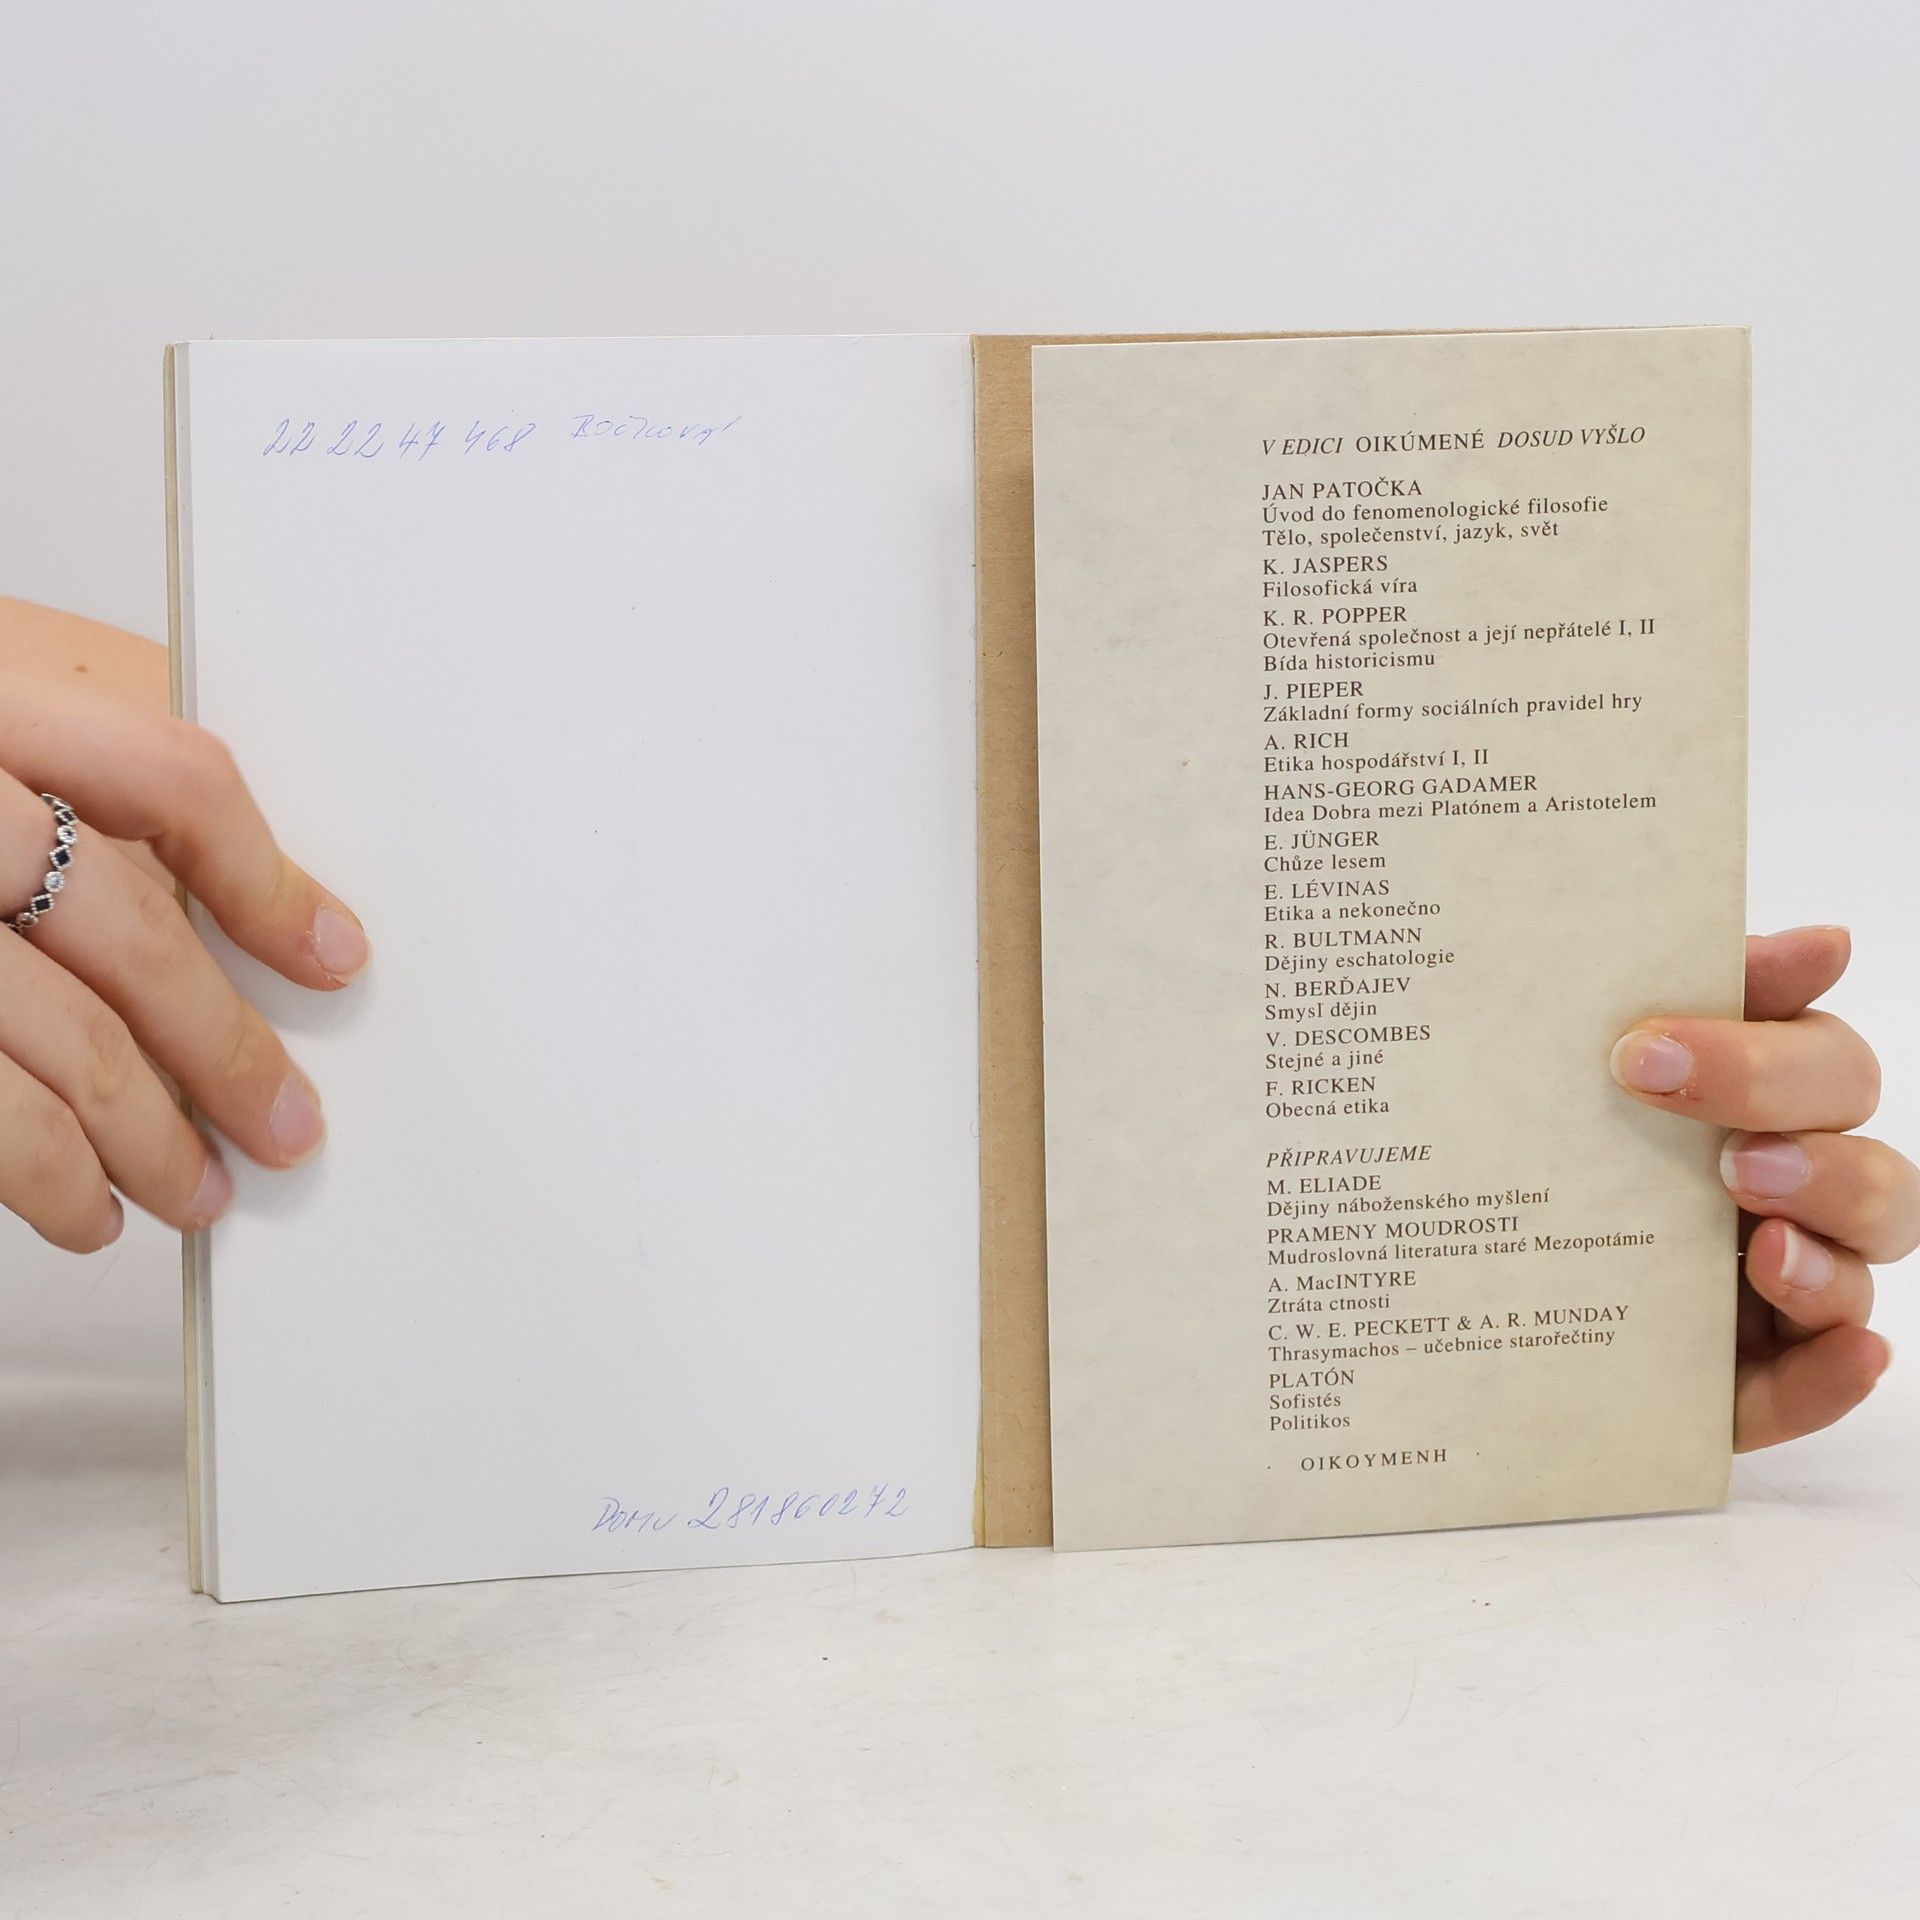 22 22 47 468
Domu 281860272
V EDICI OIKÚMENÉ DOSUD VYŠLO
JAN PATOČKA
Úvod do fenomenologické filosofie
Tělo, společenství, jazyk, svět
K. JASPERS
Filosofická víra
K. R. POPPER
Otevřená společnost a její nepřátelé I, II
Bída historicismu
J. PIEPER
Základní formy sociálních pravidel hry
A. RICH
Etika hospodářství I, II
HANS-GEORG GADAMER
Idea Dobra mezi Platónem a Aristotelem
E. JÜNGER
Chůze lesem
E. LÉVINAS
Etika a nekonečno
R. BULTMANN
Dějiny eschatologie
N. BERĎAJEV
Smysl dějin
V. DESCOMBES
Stejné a jiné
F. RICKEN
Obecná etika
PŘIPRAVUJEME
M. ELIADE
Dějiny náboženského myšlení
PRAMENY MOUDROSTI
Mudroslovná literatura staré Mezopotámie
A. MacINTYRE
Ztráta ctnosti
C. W. E. PECKETT & A. R. MUNDAY
Thrasymachos – učebnice starořečtiny
PLATÓN
Sofistés
Politikos
· OIKOYMENH ·